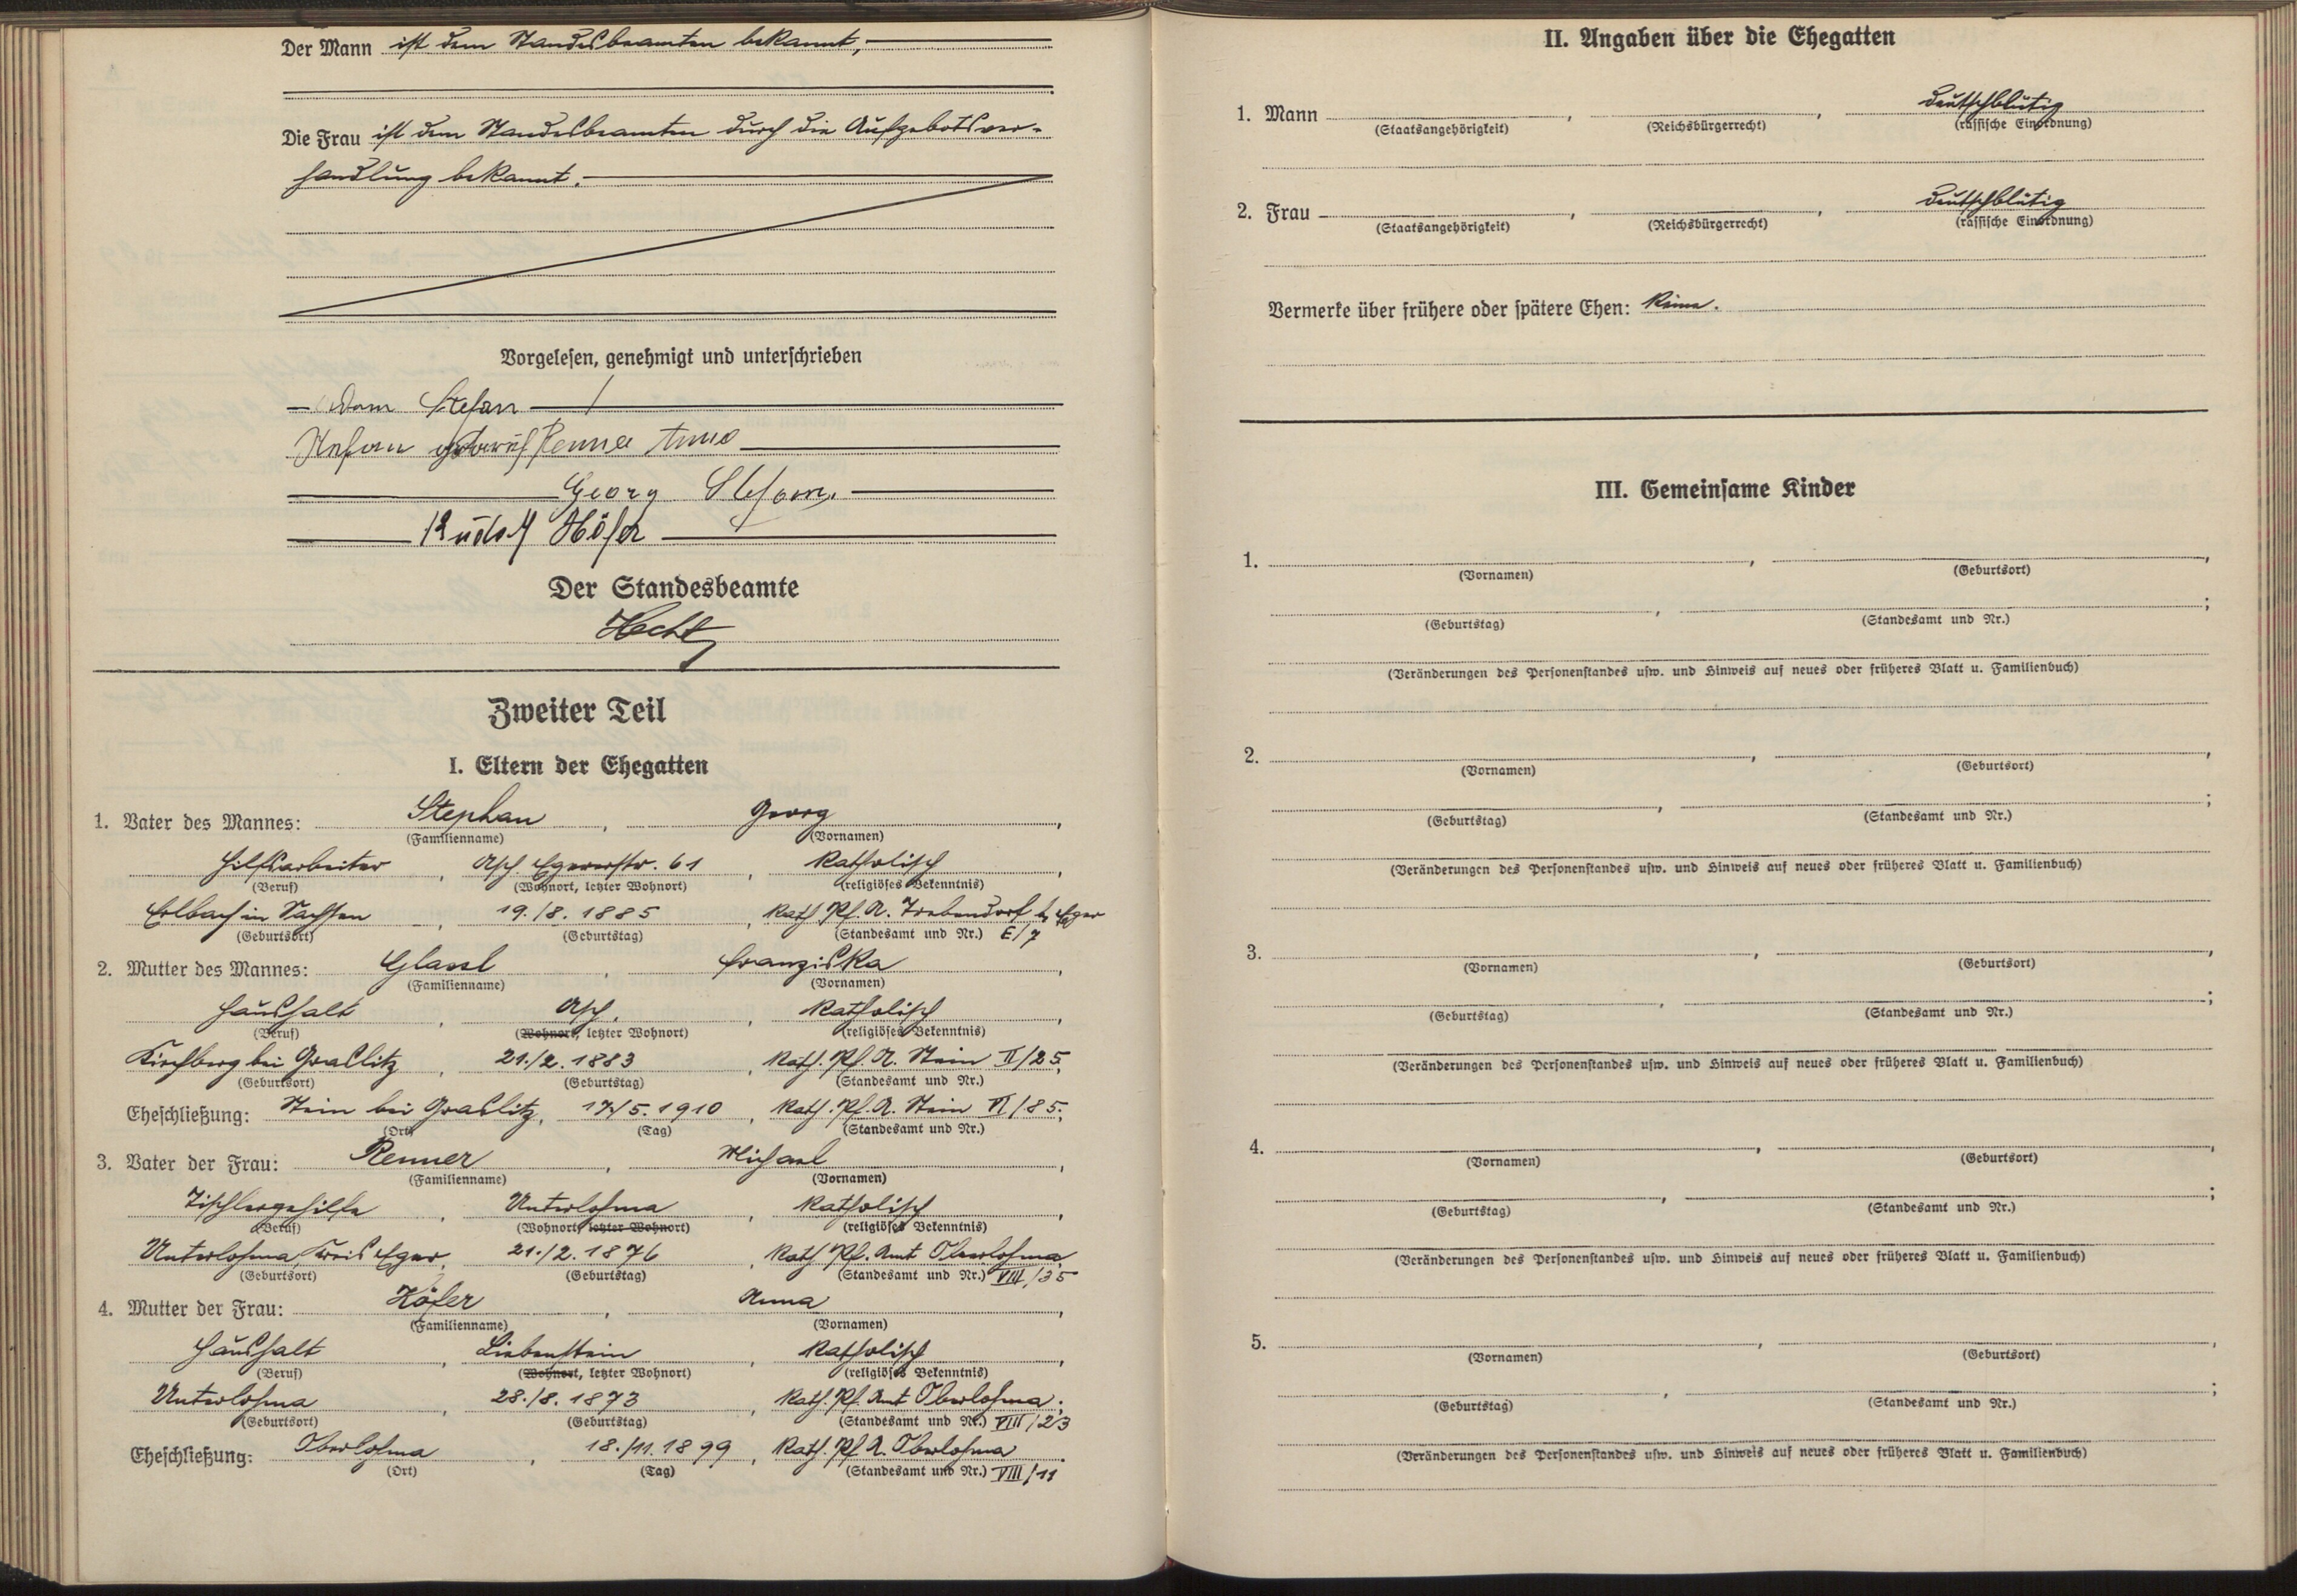 Der Mann ist dem Standesbeamten bekannt,
Die Frau ist dem Standesbeamten durch die Aufgebotsver-
handlung bekannt.
Vorgelesen, genehmigt und unterschrieben
Adam Stefan
Stefan Renner Anna
Georg Stefan.
Rudolf Höfer
Der Standesbeamte
Hecht
Zweiter Teil
I. Eltern der Ehegatten
1. Vater des Mannes: Stephan, Georg,
(Familienname) (Vornamen)
Hilfsarbeiter, Asch. Egererstr. 61, katholisch,
(Beruf) (Wohnort, letzter Wohnort) (religiöses Bekenntnis)
Erlbach in Sachsen, 19./8. 1885, Kath. Pf. A. Trebendorf b. Eger
(Geburtsort) (Geburtstag) (Standesamt und Nr.) E/7
2. Mutter des Mannes: Glassl, Franziska,
(Familienname) (Vornamen)
Haushalt, Asch., katholisch,
(Beruf) (Wohnort, letzter Wohnort) (religiöses Bekenntnis)
Kirchberg bei Graslitz, 21./2. 1883, Kath. Pf. A. Stein II/25;
(Geburtsort) (Geburtstag) (Standesamt und Nr.)
Eheschließung: Stein bei Graslitz, 17./5. 1910, Kath. Pf. A. Stein VI/85;
(Ort) (Tag) (Standesamt und Nr.)
3. Vater der Frau: Renner, Michael,
(Familienname) (Vornamen)
Tischlergehilfe, Unterlohma, katholisch,
(Beruf) (Wohnort, letzter Wohnort) (religiöses Bekenntnis)
Unterlohma, Kreis Eger, 21./2. 1876, Kath. Pf. Amt Oberlohma
(Geburtsort) (Geburtstag) (Standesamt und Nr.) VIII/35
4. Mutter der Frau: Höfer, Anna,
(Familienname) (Vornamen)
Haushalt, Liebenstein, katholisch,
(Beruf) (Wohnort, letzter Wohnort) (religiöses Bekenntnis)
Unterlohma, 28./8. 1873, Kath. Pf. Amt Oberlohma;
(Geburtsort) (Geburtstag) (Standesamt und Nr.) VIII/23
Eheschließung: Oberlohma, 18./11. 1899, Kath. Pf. A. Oberlohma.
(Ort) (Tag) (Standesamt und Nr.) VIII/11
II. Angaben über die Ehegatten
1. Mann , , deutschblütig
(Staatsangehörigkeit) (Reichsbürgerrecht) (rassische Einordnung)
2. Frau , , deutschblütig
(Staatsangehörigkeit) (Reichsbürgerrecht) (rassische Einordnung)
Vermerke über frühere oder spätere Ehen: Keine.
III. Gemeinsame Kinder
1. , ,
(Vornamen) (Geburtsort)
, ;
(Geburtstag) (Standesamt und Nr.)
(Veränderungen des Personenstandes usw. und Hinweis auf neues oder früheres Blatt u. Familienbuch)
2. , ,
(Vornamen) (Geburtsort)
, ;
(Geburtstag) (Standesamt und Nr.)
(Veränderungen des Personenstandes usw. und Hinweis auf neues oder früheres Blatt u. Familienbuch)
3. , ,
(Vornamen) (Geburtsort)
, ;
(Geburtstag) (Standesamt und Nr.)
(Veränderungen des Personenstandes usw. und Hinweis auf neues oder früheres Blatt u. Familienbuch)
4. , ,
(Vornamen) (Geburtsort)
, ;
(Geburtstag) (Standesamt und Nr.)
(Veränderungen des Personenstandes usw. und Hinweis auf neues oder früheres Blatt u. Familienbuch)
5. , ,
(Vornamen) (Geburtsort)
, ;
(Geburtstag) (Standesamt und Nr.)
(Veränderungen des Personenstandes usw. und Hinweis auf neues oder früheres Blatt u. Familienbuch)